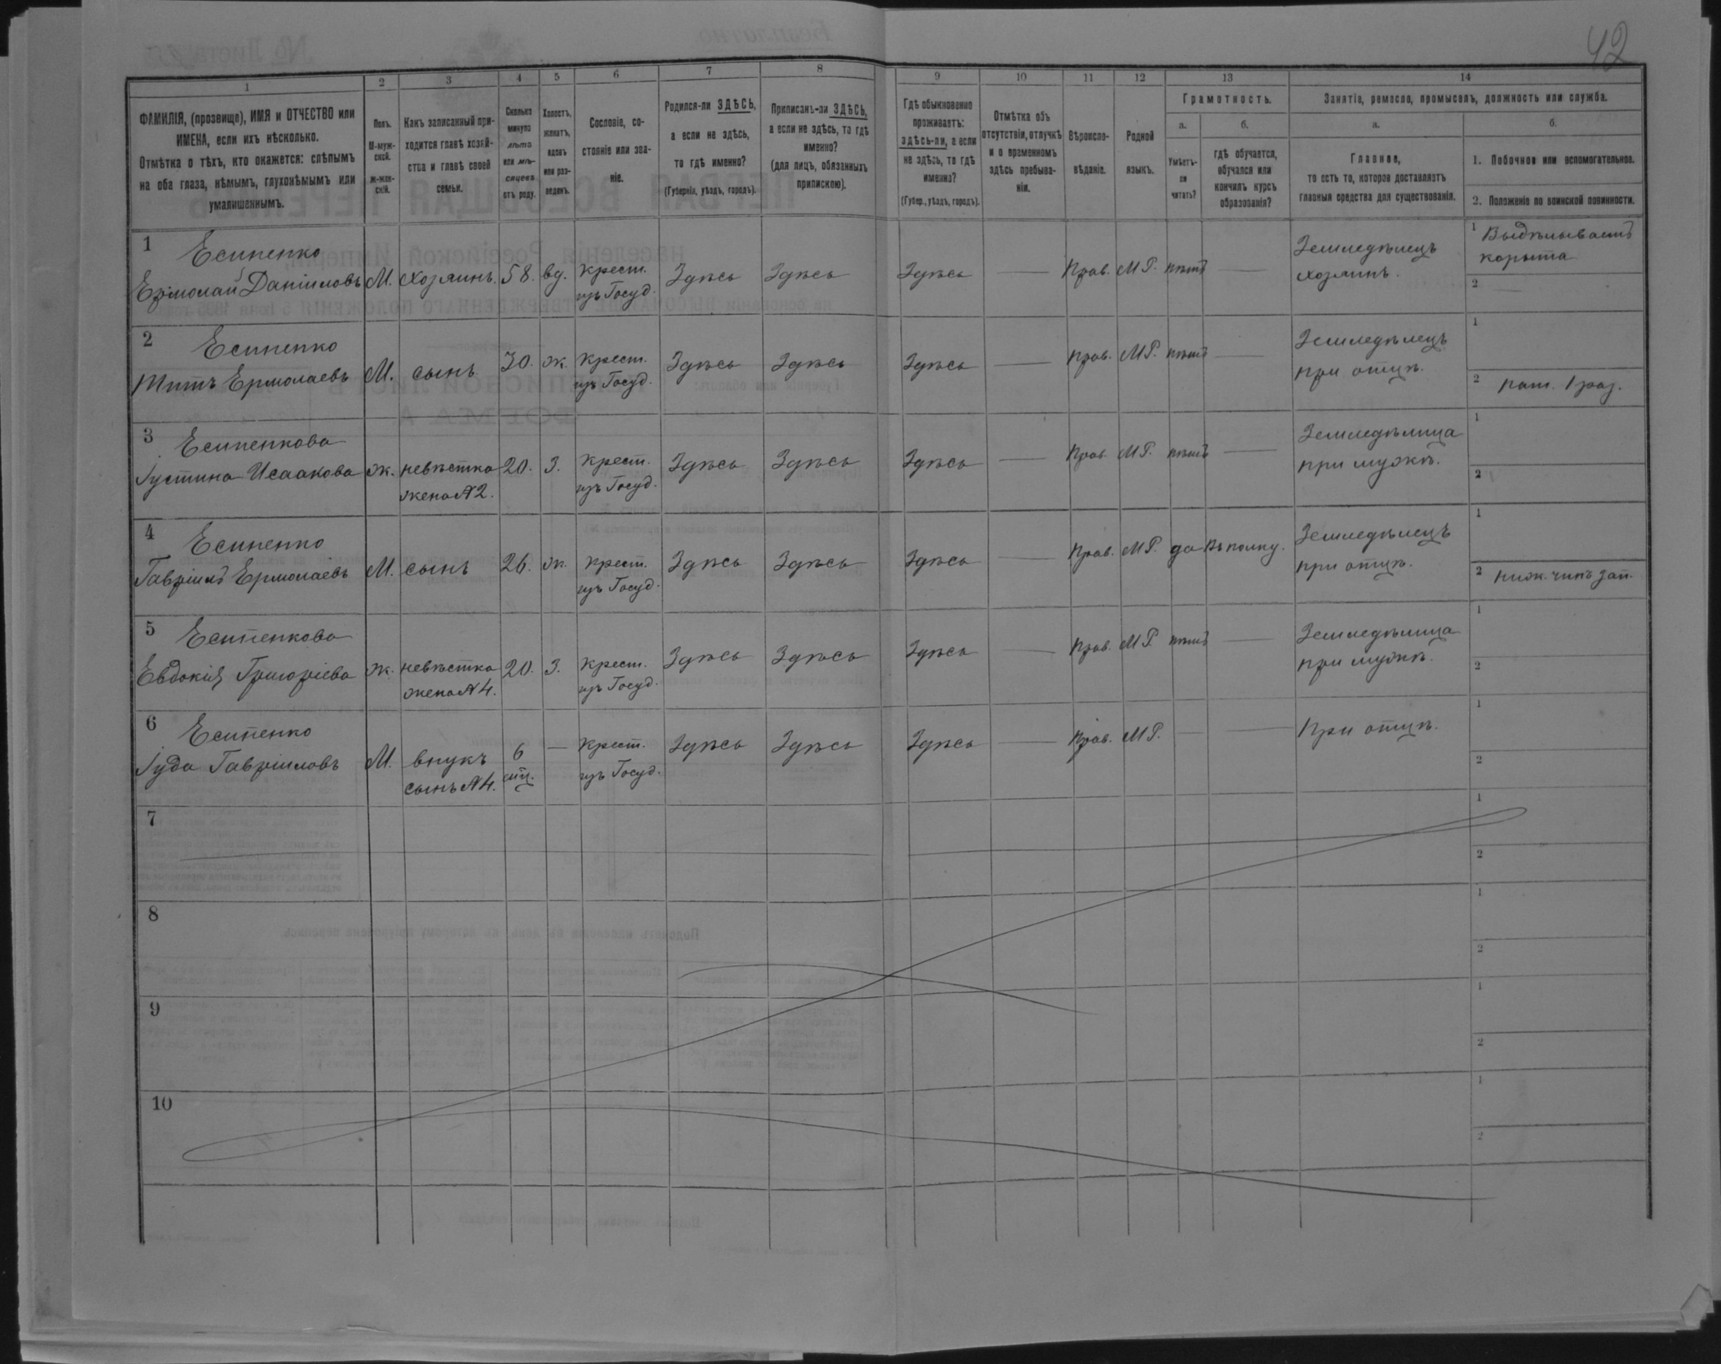 42
1 2 3 4 5 6 7 8 9 10 11 12 13 14
ФАМИЛІЯ, (прозвище), ИМЯ и ОТЧЕСТВО или
ИМЕНА, если ихъ нѣсколько.
Отмѣтка о тѣхъ, кто окажется: слѣпымъ
на оба глаза, нѣмымъ, глухонѣмымъ или
умалишеннымъ.
Полъ.
М-муж-
ской.
Ж-жен-
скій.
Какъ записанный при-
ходится главѣ хозяй-
ства и главѣ своей
семьи.
Сколько
минуло
лѣтъ
или мѣ-
сяцевъ
отъ роду.
Холостъ,
женатъ,
вдовъ
или раз-
веденъ.
Сословіе, со-
стояніе или зва-
ніе.
Родился-ли ЗДѢСЬ,
а если не здѣсь,
то гдѣ именно?
(Губернія, уѣздъ, городъ).
Приписанъ-ли ЗДѢСЬ,
а если не здѣсь, то гдѣ
именно?
(для лицъ, обязанныхъ
припискою).
Гдѣ обыкновенно
проживаетъ:
здѣсь-ли, а если
не здѣсь, то гдѣ
именно?
(Губер., уѣздъ, городъ).
Отмѣтка объ
отсутствіи, отлучкѣ
и о временномъ
здѣсь пребыва-
ніи.
Вѣроиспо-
вѣданіе.
Родной
языкъ.
Грамотность.
а.
Умѣетъ-
ли
читать?
б.
гдѣ обучается,
обучался или
кончилъ курсъ
образованія?
Занятіе, ремесло, промыселъ, должность или служба.
а.
Главное,
то есть то, которое доставляетъ
главныя средства для существованія.
б.
1. Побочное или вспомогательное.
2. Положеніе по воинской повинности.
1 Есипенко
Ермолай Даниловъ М. хозяинъ. 58. вд. Крест. изъ Госуд. Здѣсь Здѣсь Здѣсь — Прав. М Р. нѣтъ — Земледѣлецъ хозяинъ. 1 Выдѣлываетъ корыта
2 —
2 Есипенко
Титъ Ермолаевъ М. сынъ 30. ж. Крест. изъ Госуд. Здѣсь Здѣсь Здѣсь — Прав. М Р. нѣтъ — Земледѣлецъ при отцѣ. 1
2 рат. 1 раз.
3 Есипенкова
Іустина Исаакова ж. невѣстка жена №2. 20. З. Крест. изъ Госуд. Здѣсь Здѣсь Здѣсь — Прав. М Р. нѣтъ — Земледѣлица при мужѣ. 1
2
4 Есипенко
Гавріилъ Ермолаевъ М. сынъ 26. ж. Крест. изъ Госуд. Здѣсь Здѣсь Здѣсь — Прав. М Р. да въ полку. Земледѣлецъ при отцѣ. 1
2 нижн. чинъ зап.
5 Есипенкова
Евдокія Григоріева ж. невѣстка жена №4. 20. З. Крест. изъ Госуд. Здѣсь Здѣсь Здѣсь — Прав. М Р. нѣтъ — Земледѣлица при мужѣ. 1
2
6 Есипенко
Іуда Гавріиловъ М. внукъ сынъ №4. 6 — Крест. изъ Госуд. Здѣсь Здѣсь Здѣсь — Прав. М Р. — — При отцѣ. 1
2
7 1
2
8 1
2
9 1
2
10 1
2